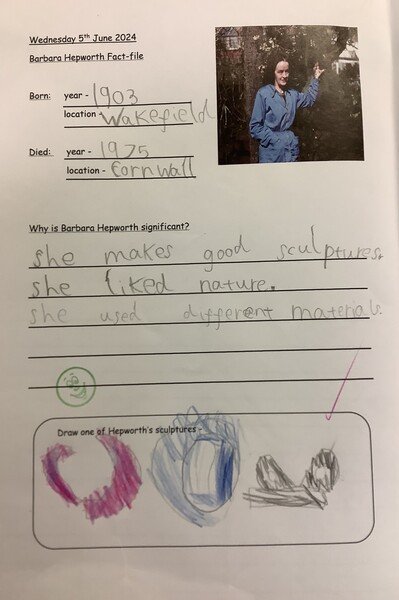 Wednesday 5th June 2024
Barbara Hepworth Fact-file
Born: year - 1903
location - Wakefield
Died: year - 1975
location - Cornwall
Why is Barbara Hepworth significant?
she makes good sculptures.
she liked nature.
she used different materials.
Draw one of Hepworth's sculptures -